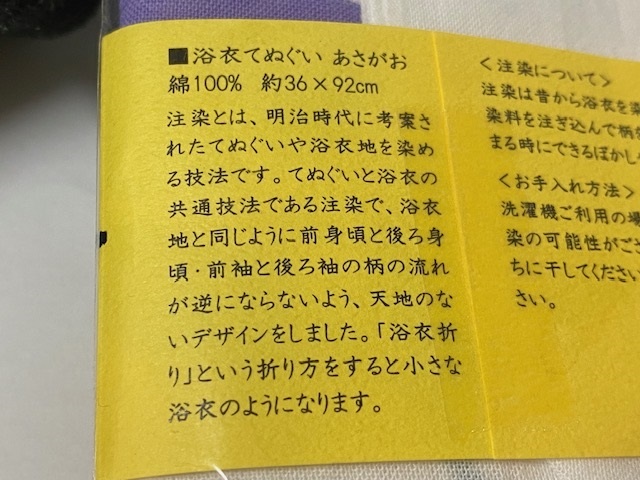 ■浴衣てぬぐい あさがお
綿100% 約36×92cm
注染とは、明治時代に考案さ
れたてぬぐいや浴衣地を染め
る技法です。てぬぐいと浴衣の
共通技法である注染で、浴衣
地と同じように前身頃と後ろ身
頃・前袖と後ろ袖の柄の流れ
が逆にならないよう、天地のな
いデザインをしました。「浴衣折
り」という折り方をすると小さな
浴衣のようになります。
＜注染について＞
注染は昔から浴衣を染
染料を注ぎ込んで柄
まる時にできるぼかし
＜お手入れ方法＞
洗濯機ご利用の場
染の可能性がござ
ちに干してください
さい。